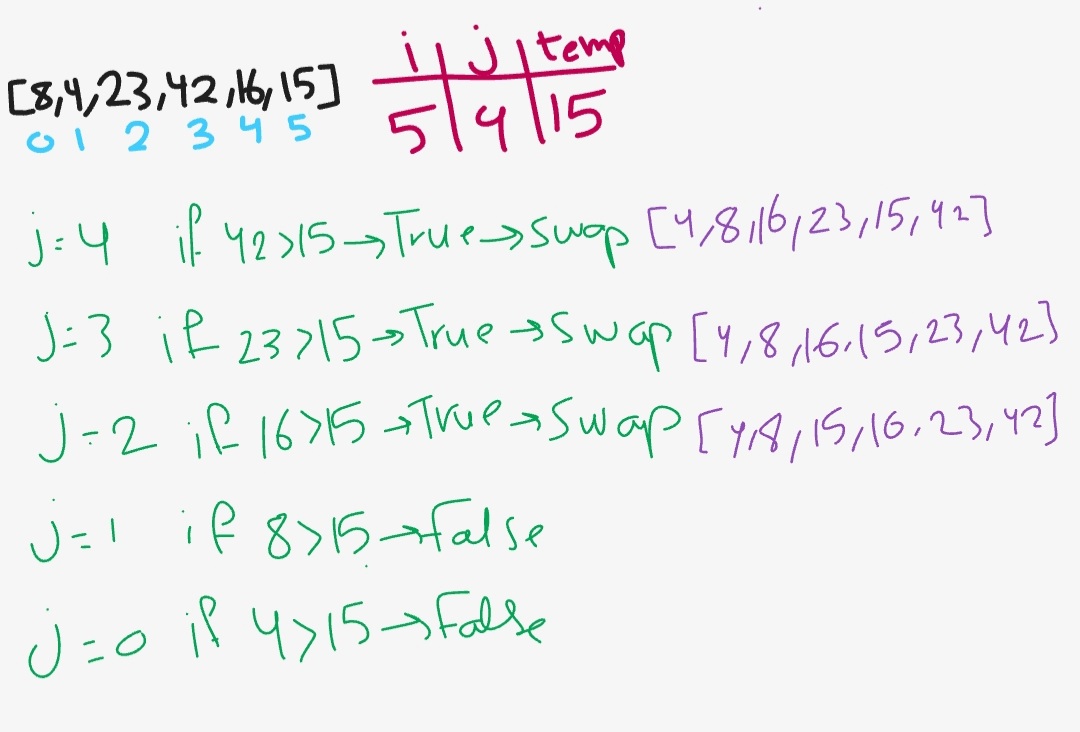 [8,4,23,42,16,15]
0 1 2 3 4 5
i j temp
5 4 15
j=4 if 42>15→True→swap [4,8,16,23,15,42]
J=3 if 23>15→True→swap [4,8,16,15,23,42]
J=2 if 16>15→True→swap [4,8,15,16,23,42]
j=1 if 8>15→false
j=0 if 4>15→False